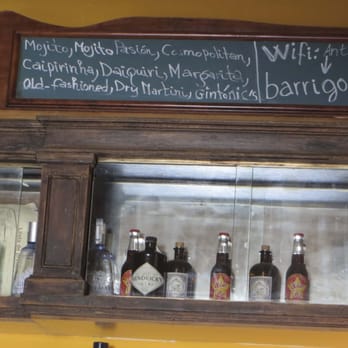 Mojito, Mojito Pasión, Cosmopolitan,
Caipirinha, Daiquiri, Margarita,
Old-fashioned, Dry Martini, Gintónic's
Wifi: Ant
barrigo
HENDRICK'S